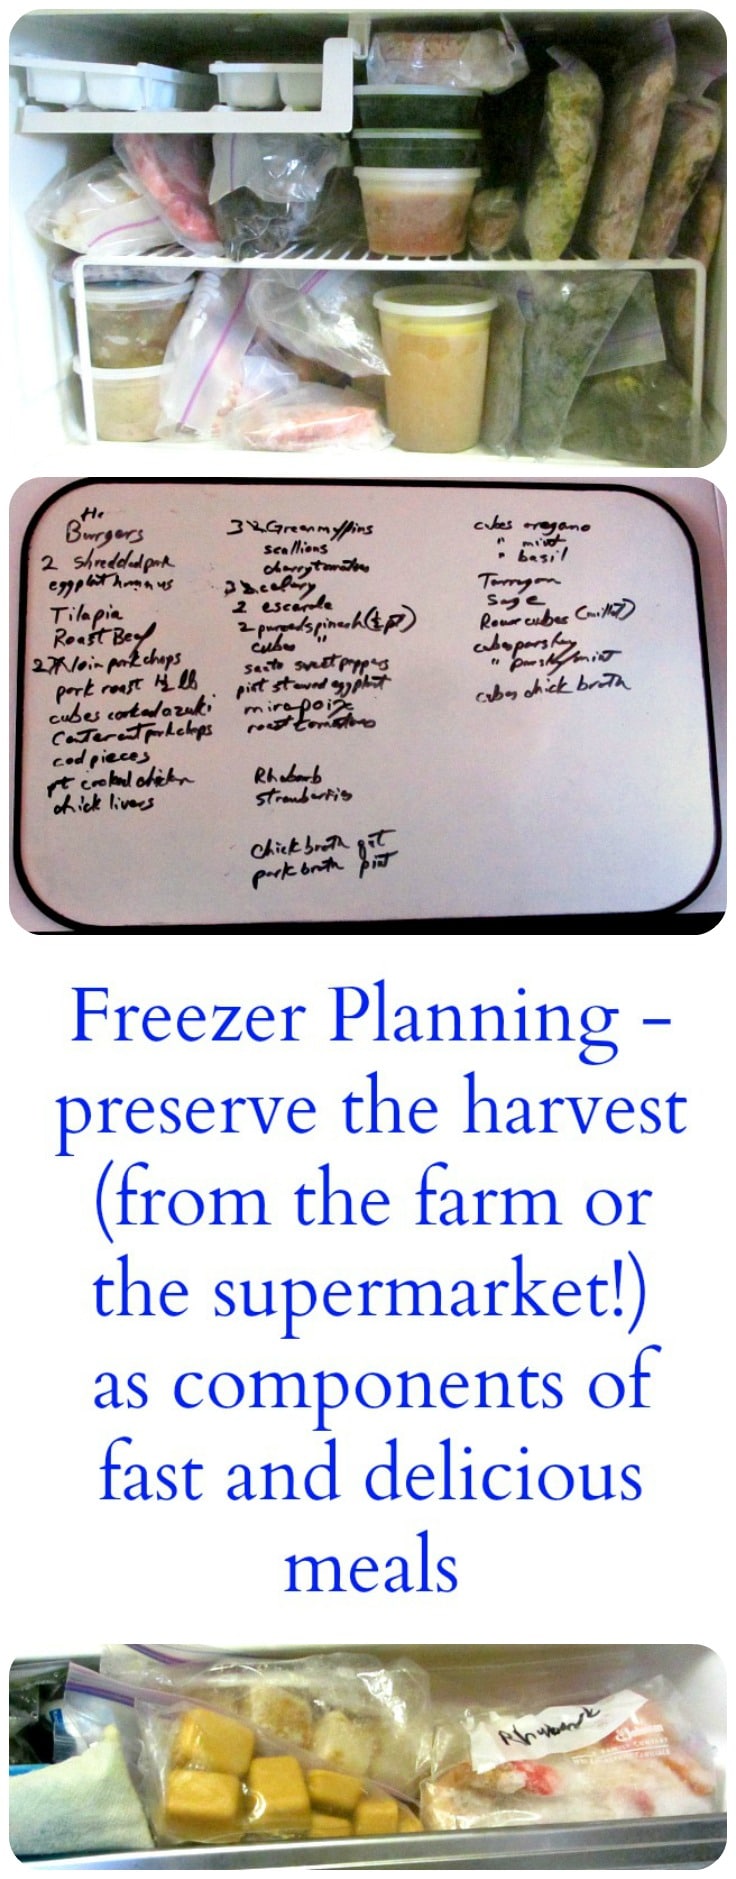 Burgers
2 Shredded pork
eggplant hummus
Tilapia
Roast Beef
loin pork chops
pork roast 1½ lb
cubes cooked azuki
Center cut pork chops
cod pieces
pt cooked chicken
chick livers
Green muffins
scallions
cherry tomatoes
celery
2 escarole
2 pureed spinach (½ pt)
cubes "
sweet peppers
pint stewed eggplant
mirepoix
roast tomatoes
Rhubarb
Strawberries
chick broth qt
pork broth pint
cubes oregano
" mint
" basil
Tarragon
Sage
cubes (millet)
cubes parsley
" parsley/mint
cubes chick broth
Freezer Planning -
preserve the harvest
(from the farm or
the supermarket!)
as components of
fast and delicious
meals
Rhubarb